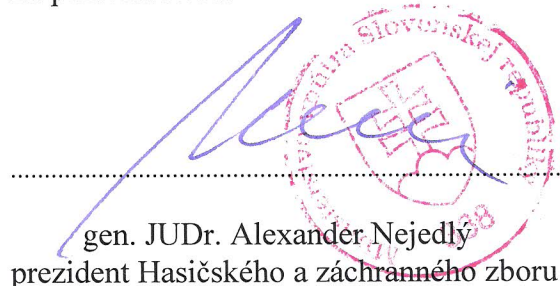 Ministerstvo vnútra Slovenskej republiky
gen. JUDr. Alexander Nejedlý
prezident Hasičského a záchranného zboru